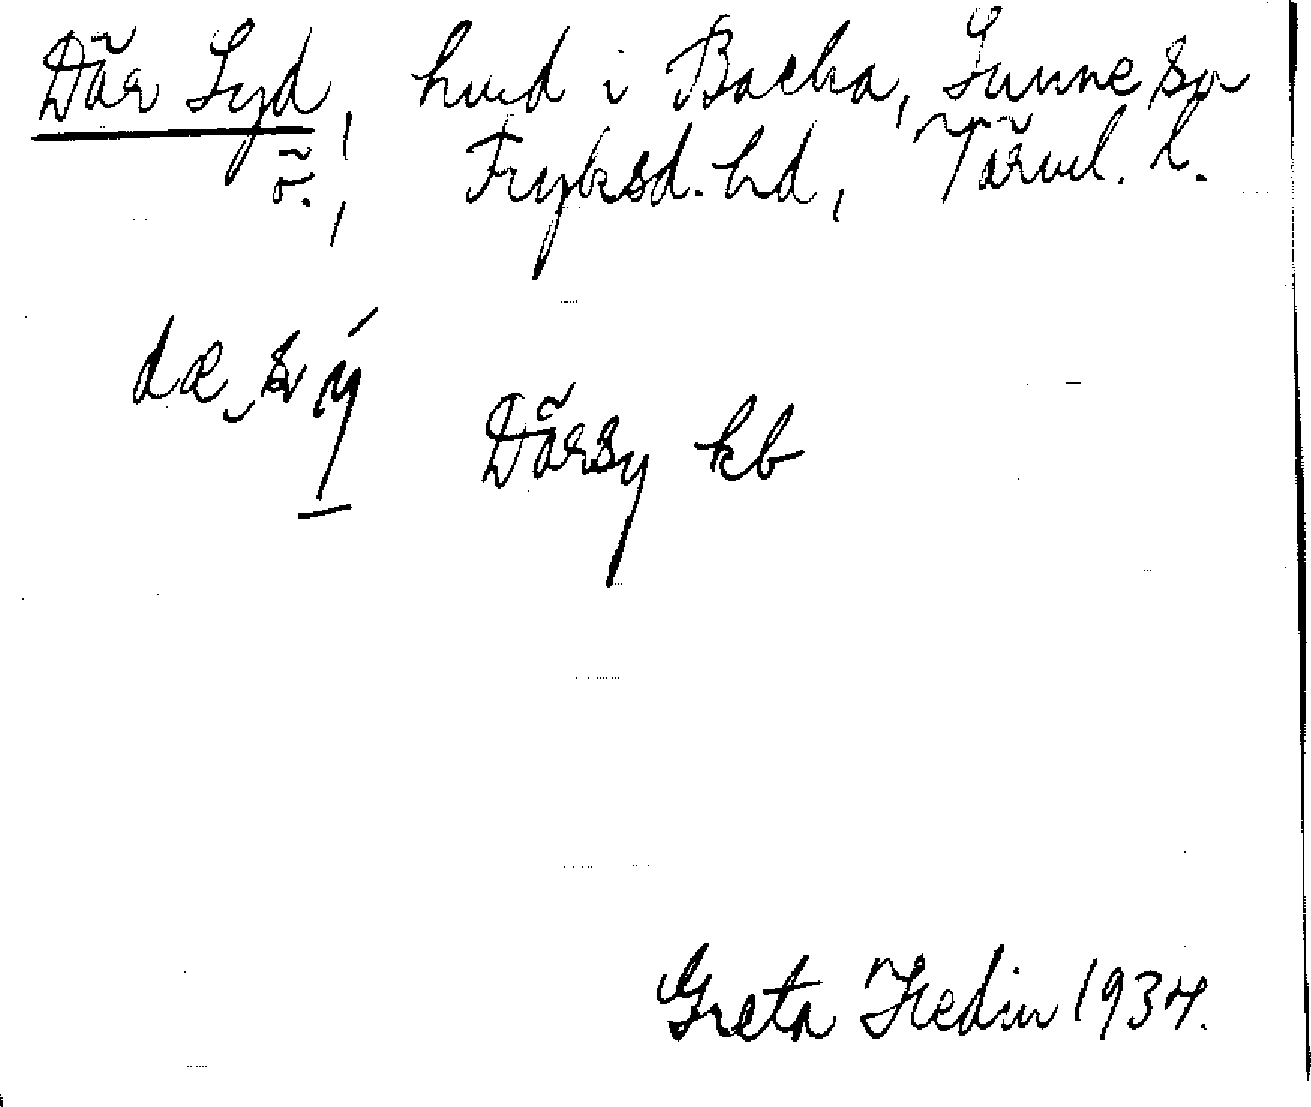 Där Syd, hmd i Backa, Sunne sn
ö. Fryksd. hd, Värml. l.
dæ sý
Därsy kb
Greta Hedin 1934.